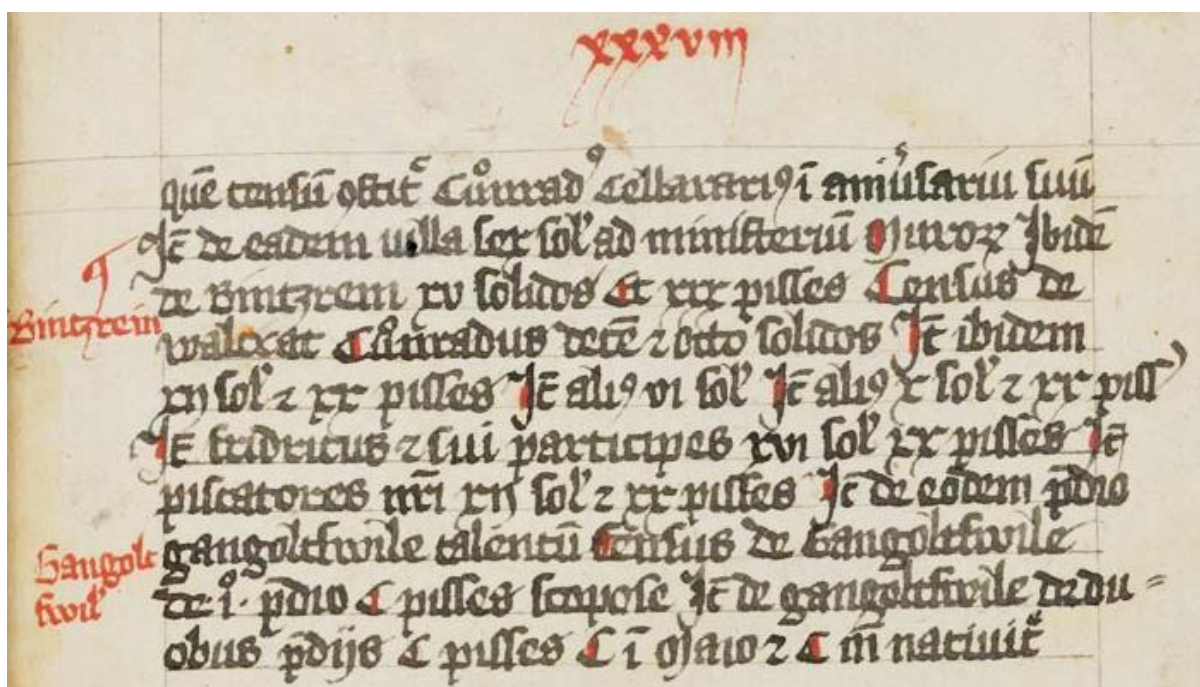 xxxviii
quē censū ostit Cůnrad Cellarari⁹ ī suū
Itē de eadem uilla sex sol ad ministeriū Muroꝝ Ibidē
de Bintzrein xv solidos Et xxx pisses Census de
Bintzrein
walxat Cůnradus decē ⁊ octo solidos Itē ibidem
xij sol ⁊ xx pisses Itē ali⁹ vi sol Itē ali⁹ x sol ⁊ xx piss
Itē fridricus ⁊ sui participes xvi sol xx pisses Itē
piscatores nr̄i xij sol ⁊ xx pisses Itē de eōdem p̄dio
gangoltswile talentū Census de Gangoltswile
Gangolt
swil
de ·i· p̄dio C pisses scopose Itē de gangoltswile de du=
obus p̄dijs C pisses C ī Maio ⁊ C in natiuit